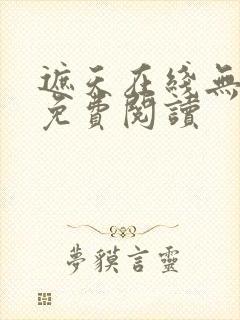 遮天在綫無
免費閱讀
夢貘言靈